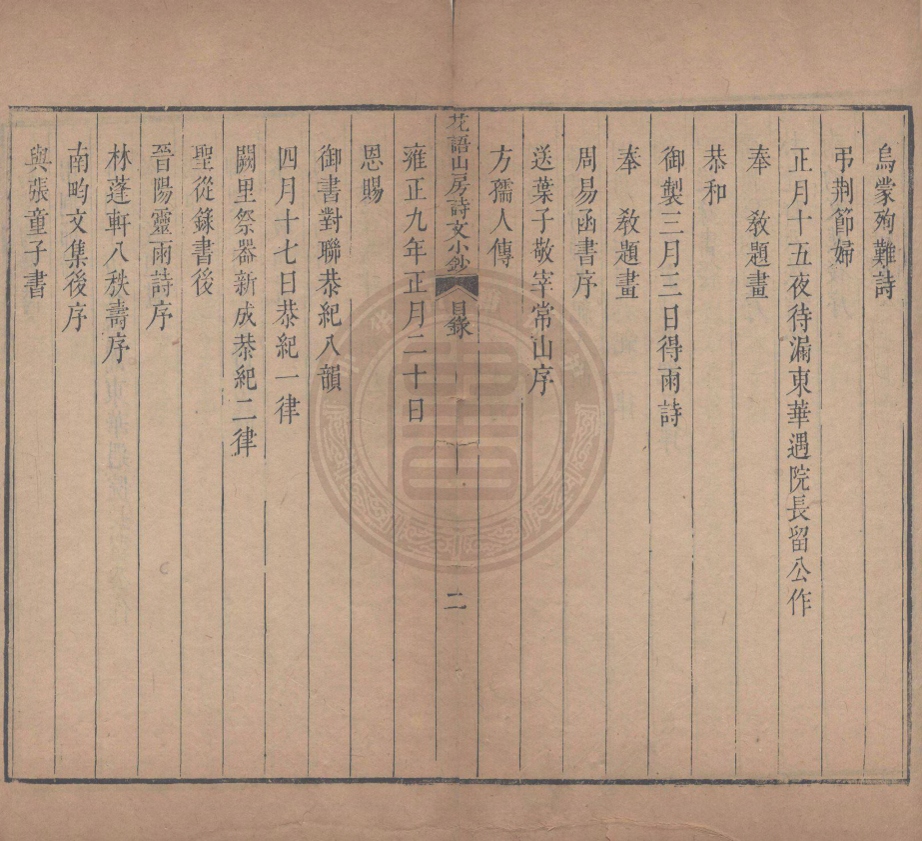 烏蒙殉難詩
弔荆節婦
正月十五夜待漏東華遇院長留公作
奉　敎題畫
恭和
御製三月三日得雨詩
奉　敎題畫
周易函書序
送葉子敬宰常山序
方孺人傳
花語山房詩文小鈔　目錄　二
雍正九年正月二十日
恩賜
御書對聯恭紀八韻
四月十七日恭紀一律
闕里祭器新成恭紀二律
聖從錄書後
晉陽靈雨詩序
林蓬軒八秩壽序
南畇文集後序
與張童子書